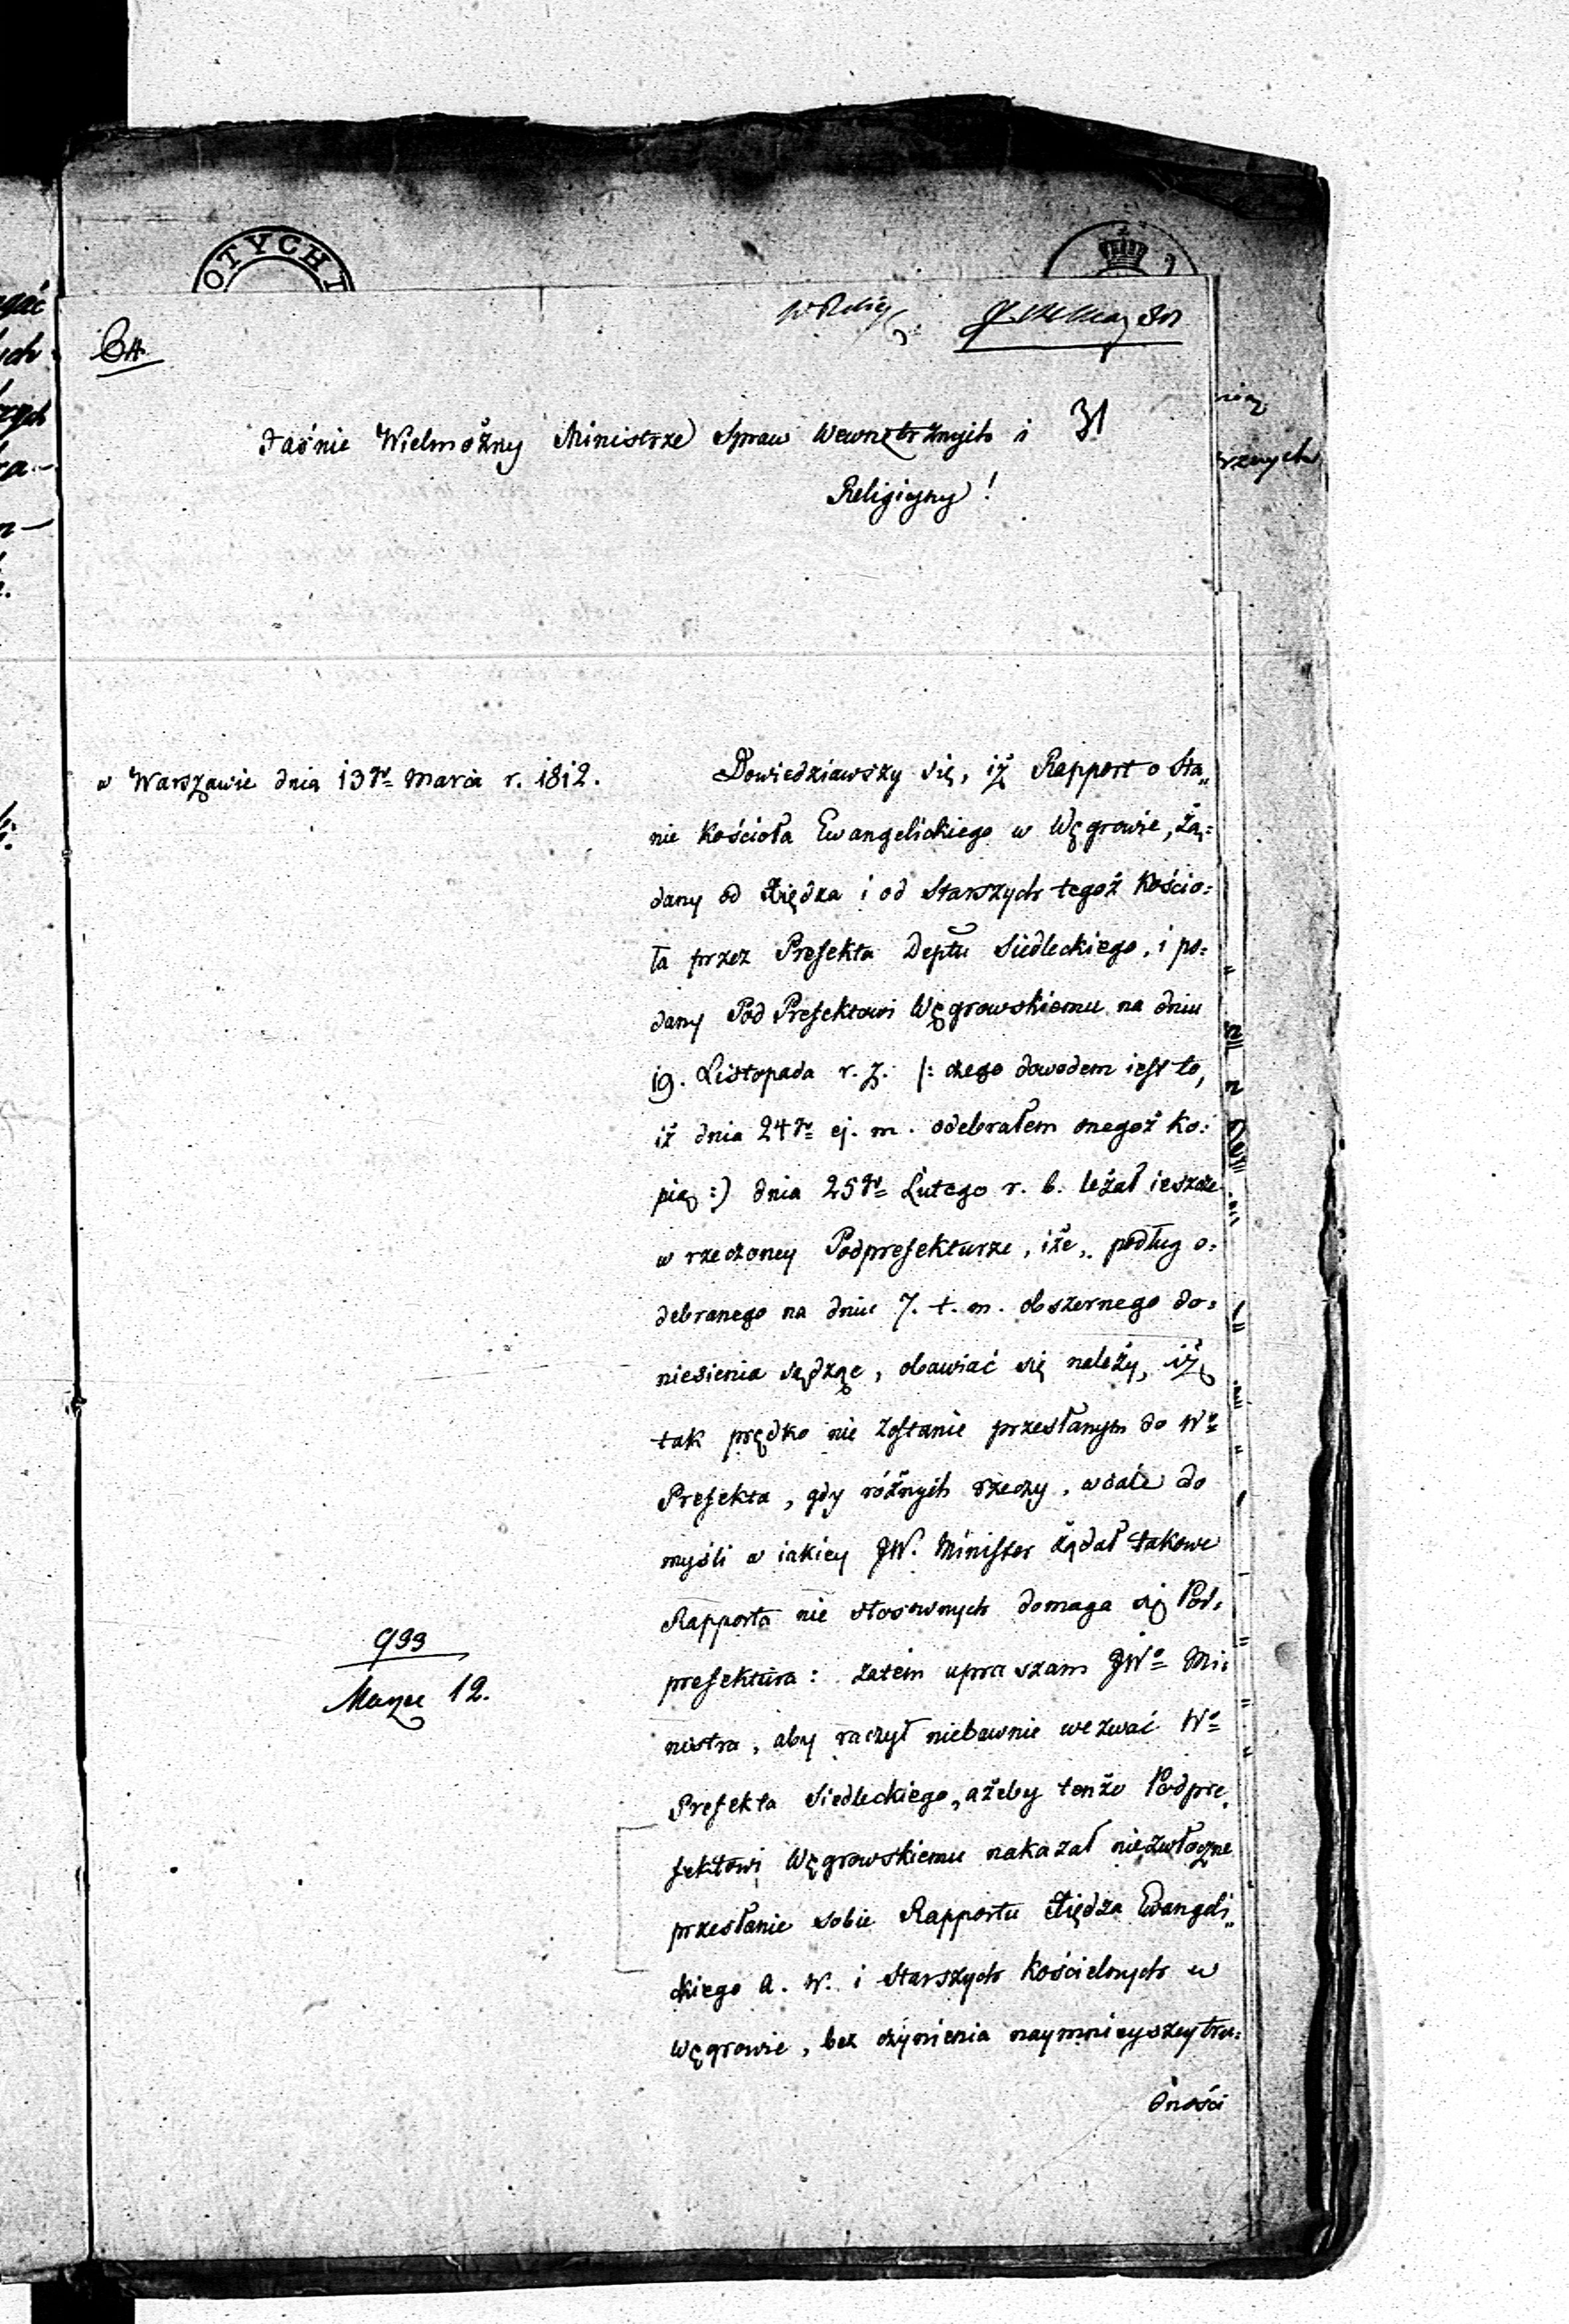 OTYCH
31
Jaśnie Wielmożny Ministrze Spraw Wewnętrznych i
Religiyny!
w Warszawie dnia 13go Marca r. 1812.
Dowiedziawszy się, iż Rapport o sta„
nie Kościoła Ewangelickiego w Węgrowie, żą=
dany od Xiędza i od Starszych tegoż Kościo=
ła przez Prefekta Deptu Siedleckiego, i po=
dany Pod Prefektowi Węgrowskiemu na dniu
19. Listopada r. z. /: czego dowodem iest to,
iż dnia 24go ej. m. odebrałem onegoż ko=
pią :) dnia 25go Lutego r. b. leżał ieszcze
w rzeczoney Podprefekturze, iże, podług o=
debranego na dniu 7. t. m. obszernego do=
niesienia sądząc, obawiać się należy, iż
tak prędko nie zostanie przesłanym do Wo
Prefekta, gdy różnych rzeczy, wcale do
myśli w iakiey JW. Minister żądał takowe
Rapporta nie stosownych domaga się Pod=
prefektura: zatem upraszam JWo Mi=
nistra, aby raczył niebawnie wezwać Wo
Prefekta Siedleckiego, ażeby tenże Podpre
fektowi Węgrowskiemu nakazał niezwłoczne
przesłanie sobie Rapportu Xiędza Ewangeli„
ckiego A. W. i Starszych Kościelnych w
Węgrowie, bez czynienia naymnieyszey tru=
dności
933
Marze 12.